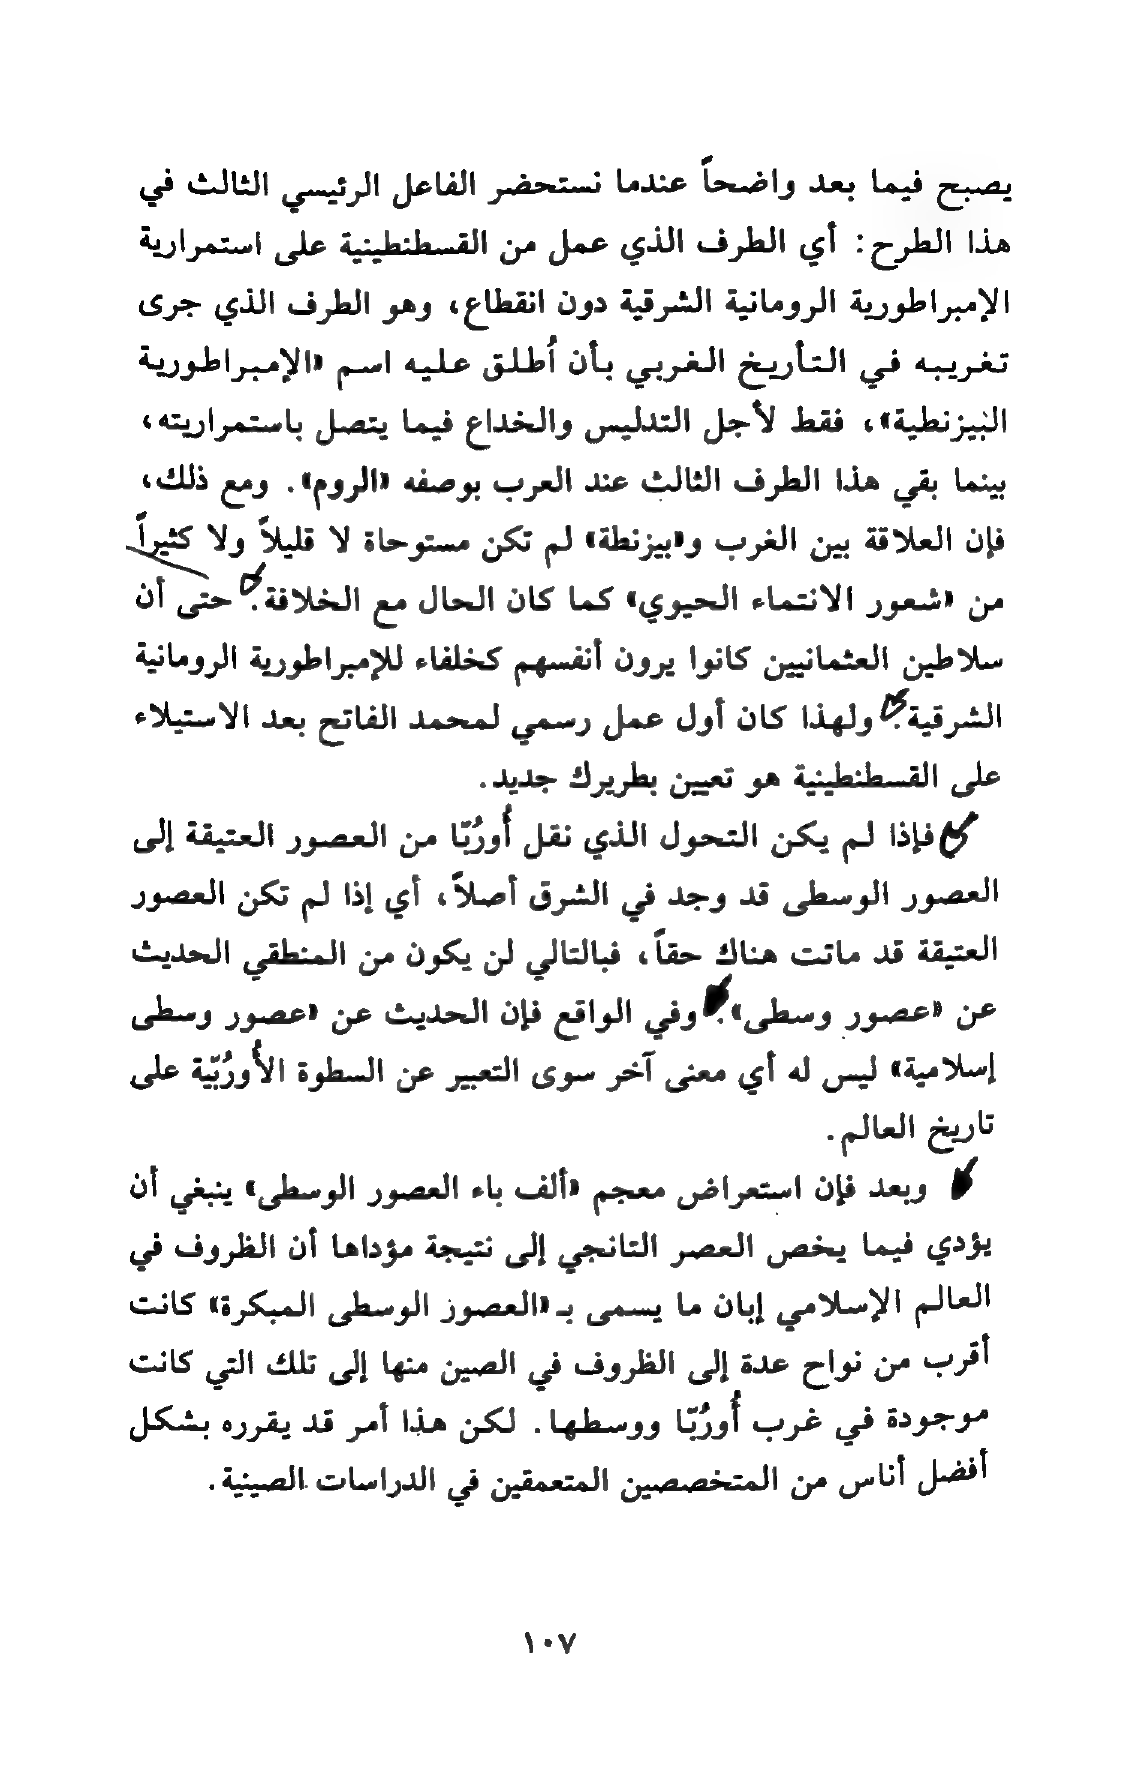 يصبح فيما بعد واضحاً عندما نستحضر الفاعل الرئيسي الثالث في
هذا الطرح: أي الطرف الذي عمل من القسطنطينية على استمرارية
الإمبراطورية الرومانية الشرقية دون انقطاع، وهو الطرف الذي جرى
تغريبه في التأريخ الغربي بأن أُطلق عليه اسم «الإمبراطورية
البيزنطية»، فقط لأجل التدليس والخداع فيما يتصل باستمراريته،
بينما بقي هذا الطرف الثالث عند العرب بوصفه «الروم». ومع ذلك،
فإن العلاقة بين الغرب و«بيزنطة» لم تكن مستوحاة لا قليلاً ولا كثيراً
من «شعور الانتماء الحيوي» كما كان الحال مع الخلافة. حتى أن
سلاطين العثمانيين كانوا يرون أنفسهم كخلفاء للإمبراطورية الرومانية
الشرقية. ولهذا كان أول عمل رسمي لمحمد الفاتح بعد الاستيلاء
على القسطنطينية هو تعيين بطريرك جديد.
فإذا لم يكن التحول الذي نقل أُورُبّا من العصور العتيقة إلى
العصور الوسطى قد وجد في الشرق أصلاً، أي إذا لم تكن العصور
العتيقة قد ماتت هناك حقاً، فبالتالي لن يكون من المنطقي الحديث
عن «عصور وسطى». وفي الواقع فإن الحديث عن «عصور وسطى
إسلامية» ليس له أي معنى آخر سوى التعبير عن السطوة الأُورُبّية على
تاريخ العالم.
وبعد فإن استعراض معجم «ألف باء العصور الوسطى» ينبغي أن
يؤدي فيما يخص العصر التانجي إلى نتيجة مؤداها أن الظروف في
العالم الإسلامي إبان ما يسمى بـ«العصور الوسطى المبكرة» كانت
أقرب من نواح عدة إلى الظروف في الصين منها إلى تلك التي كانت
موجودة في غرب أُورُبّا ووسطها. لكن هذا أمر قد يقرره بشكل
أفضل أناس من المتخصصين المتعمقين في الدراسات الصينية.
١٠٧